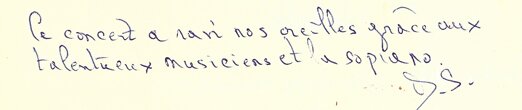 Ce concert a ravi nos oreilles grâce aux
talentueux musiciens et la sopiano.
D.S.